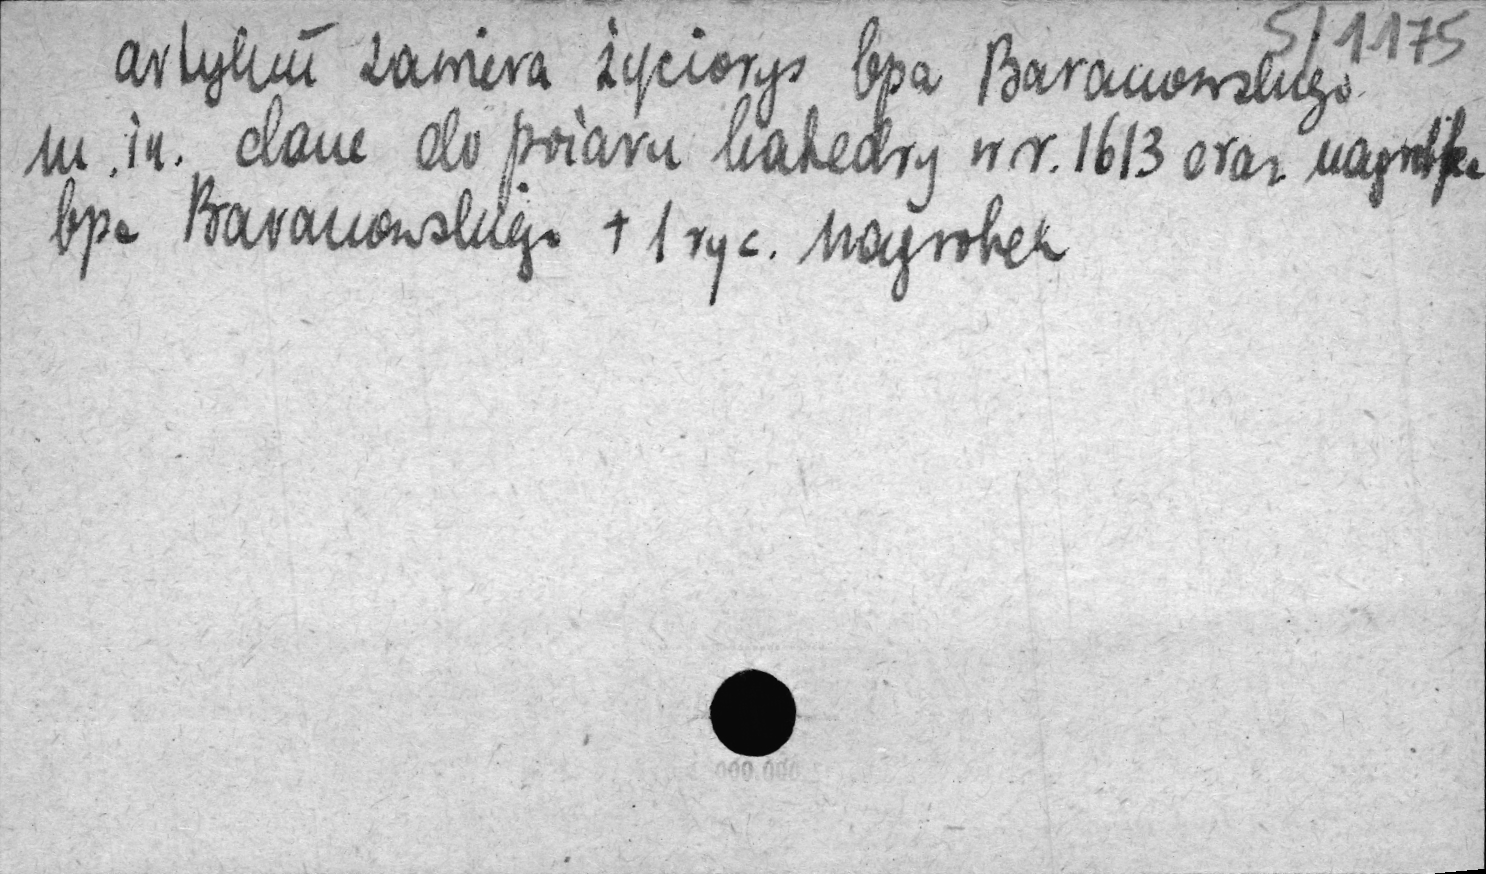 5/1175
artykuł zawiera życiorys bpa Baranowskiego
m. in. dane do pożaru katedry w r. 1613 oraz nagrobka
bpa Baranowskiego + 1 ryc. nagrobek
000.000